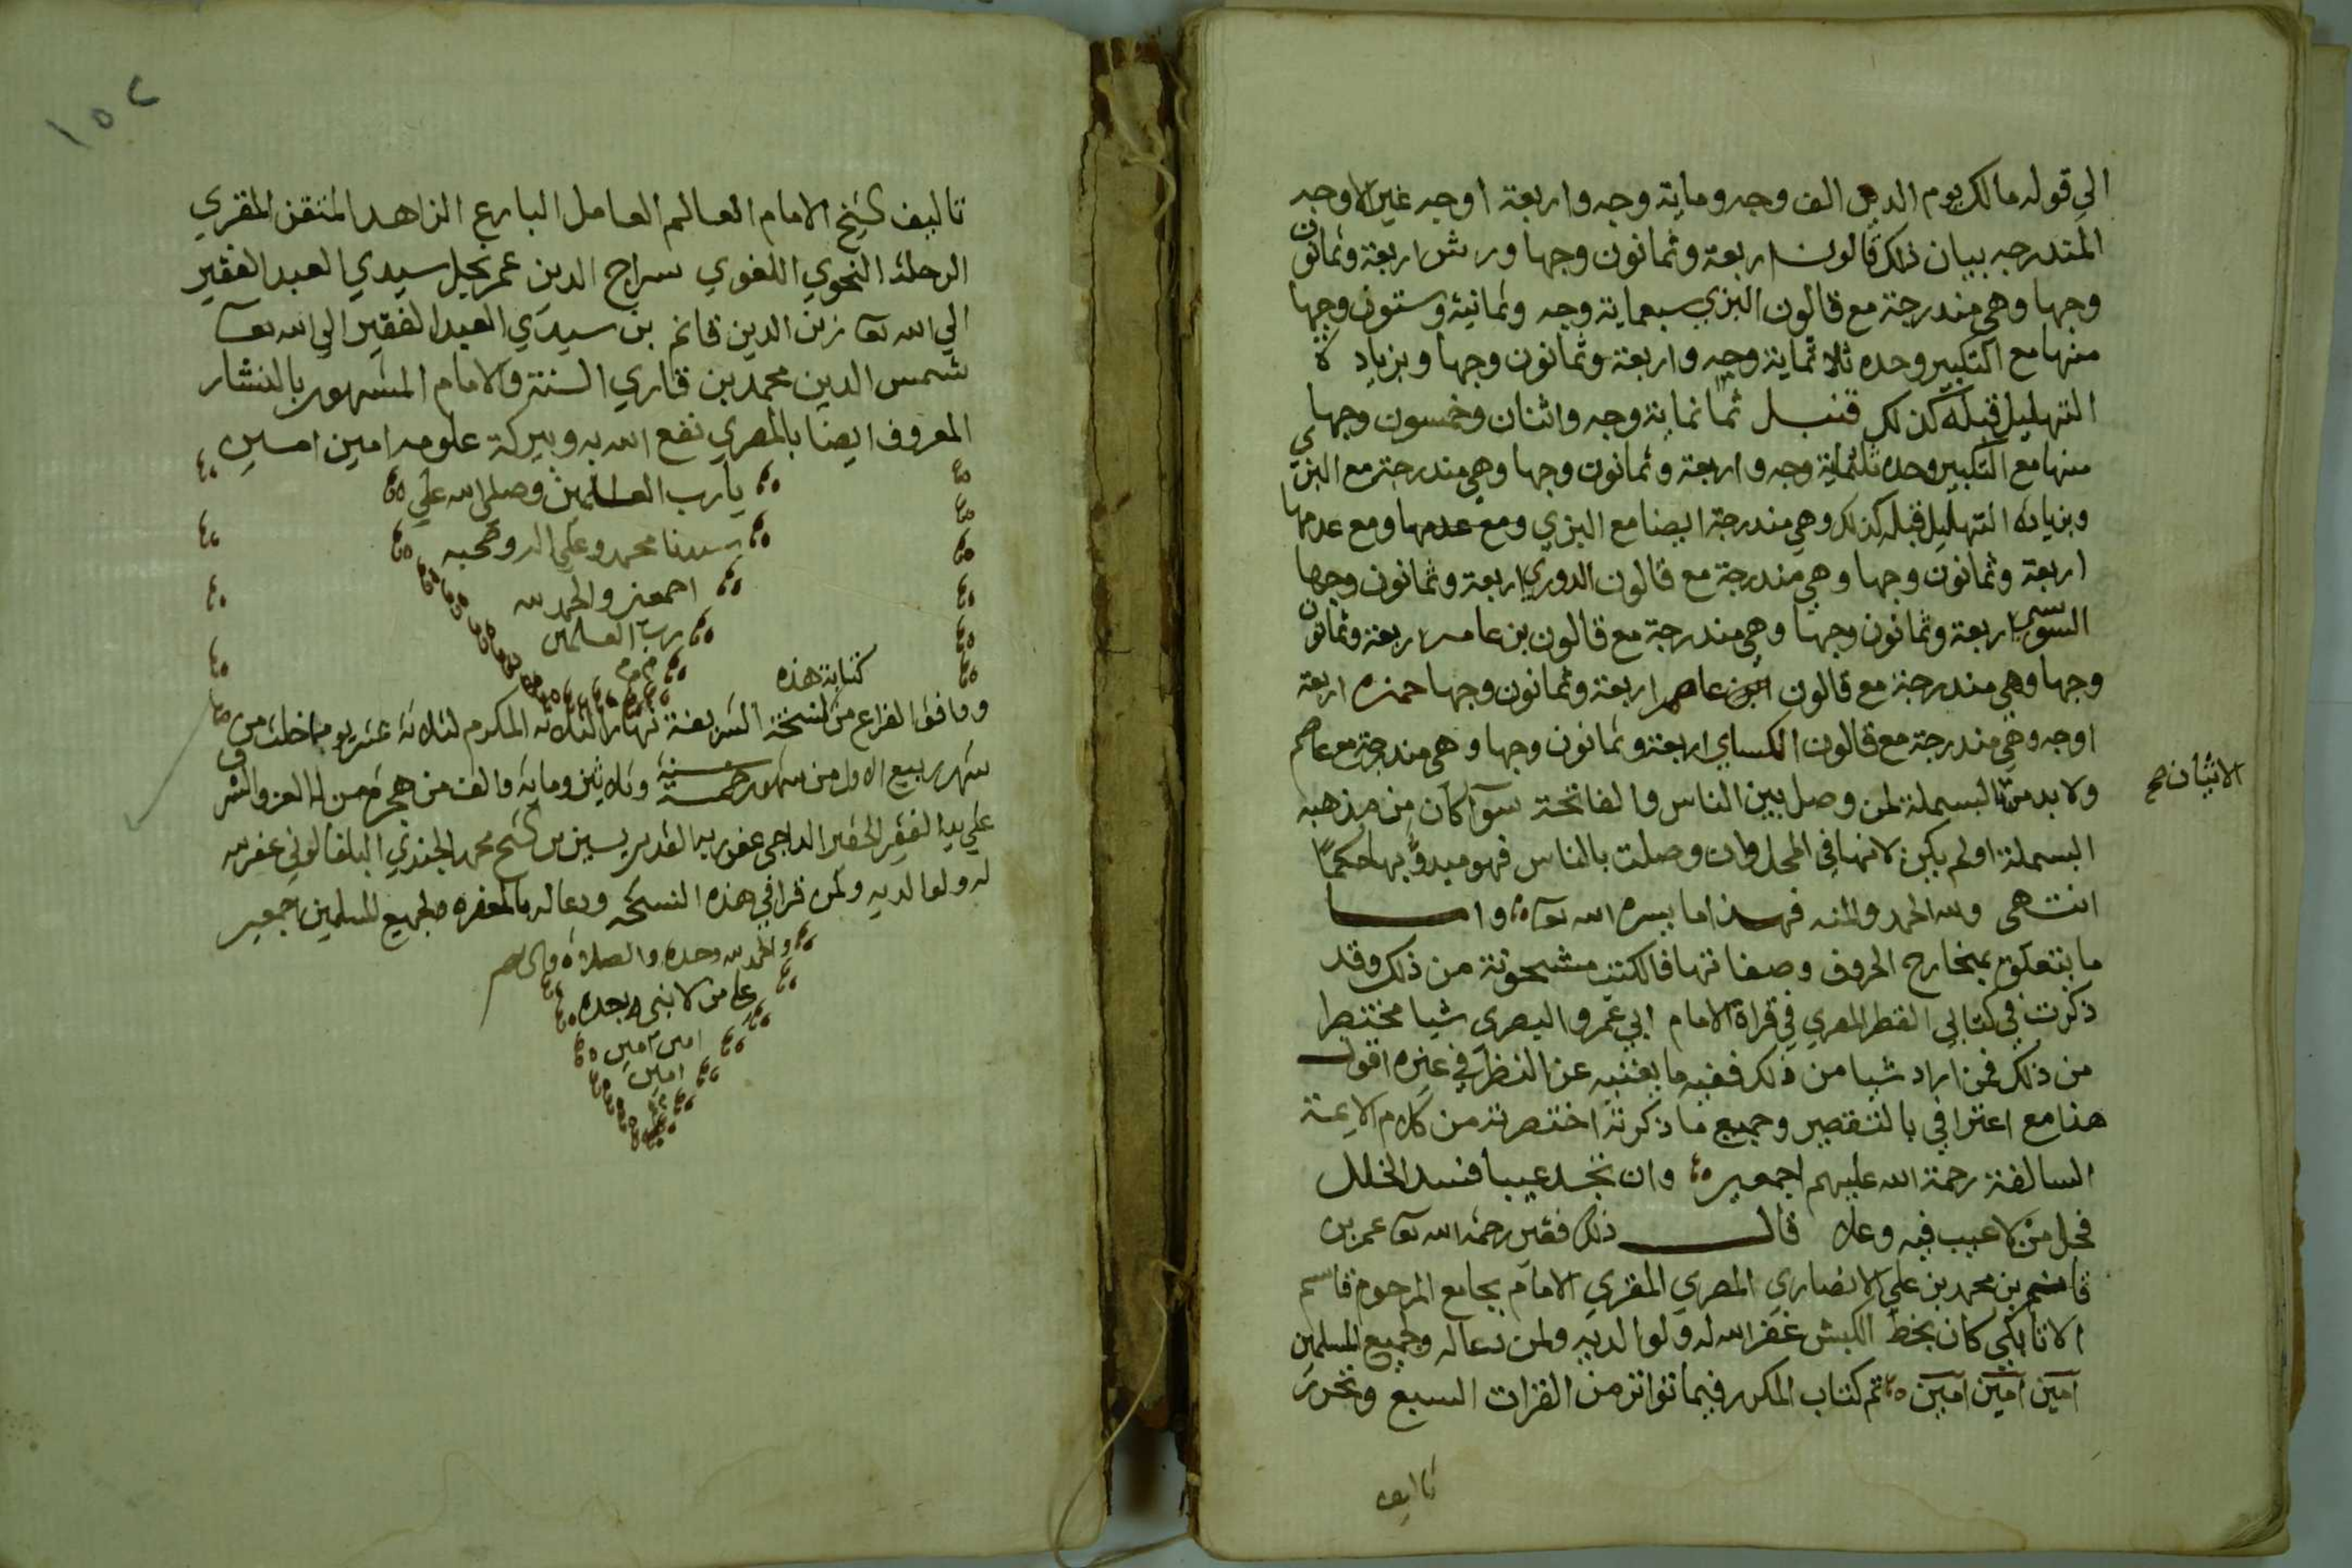 الي قوله مالك يوم الدين الف وجه وماية وجه واربعة اوجه غير الاوجه
المندرجه بيان ذلك قالون اربعة وثمانون وجها ورش اربعة وثمانون
وجها وهي مندرجة مع قالون البزي سبعماية وجه وثمانية وستون وجها
منها مع التكبير وحده ثلاثماية وجه واربعة وثمانون وجها وبزيادة
التهليل قبله كذلك قنبل ثمانماية وجه واثنان وخمسون وجها
منها مع التكبير وحده ثلثماية وجه واربعة وثمانون وجها وهي مندرجة مع البزي
وبزيادة التهليل قبله كذلك وهي مندرجة ايضا مع البزي ومع عدمها ومع عدمها
اربعة وثمانون وجها وهي مندرجة مع قالون الدوري اربعة وثمانون وجها
السوسي اربعة وثمانون وجها وهي مندرجة مع قالون بن عامر اربعة وثمانون
وجها وهي مندرجة مع قالون عاصم اربعة وثمانون وجها حمزه اربعة
اوجه وهي مندرجة مع قالون الكساي اربعة وثمانون وجها وهي مندرجة مع عاصم
ولا بد من البسملة لمن وصل بين الناس والفاتحة سوآ كان من مذهبه
الاتيان صح
البسملة او لم يكن لانها في المحل وان وصلت بالناس فهو مبدوٌّ بها حكمًا
انتهى ولله الحمد والمنه فهذا ما يسره الله تعا واما
ما يتعلق بمخارج الحروف وصفاتها فالكتب مشحونة من ذلك وقد
ذكرت في كتابي القطر المصري في قراة الامام ابي عمرو البصري شيا مختصرا
من ذلك فمن اراد شيا من ذلك ففيه ما يغنيه عن النظر في غيره اقول
هذا مع اعترافي بالتقصير وجميع ما ذكرته اختصرته من كلام الايمة
السالفة رحمة الله عليهم اجمعين وان تجد عيبا فسد الخلل
فجل من لا عيب فيه وعلا قال ذلك فقير رحمة الله تعا عمر بن
قاسم بن محمد بن علي الانصاري المصري المقري الامام بجامع المرحوم قاسم
الاتابكي كان بخط الكبش غفر الله له ولوالديه ولمن دعا له ولجميع المسلمين
آمين آمين آمين تم كتاب المكرر فيما تواتر من القرات السبع وتحرر
تاليف
١٥٢
تاليف الشيخ الامام العالم العامل البارع الزاهد المتقن المقري
الرحلة النحوي اللغوي سراج الدين عمر نجل سيدي العبد الفقير
الي الله تعا زين الدين قاسم بن سيدي العبد الفقير الي الله تعا
شمس الدين محمد بن قاري السنة والامام المشهور بالنشار
المعروف ايضا بالمصري نفع الله به وببركة علومه امين امين
يا رب العالمين وصلى الله علي
سيدنا محمد وعلي اله وصحبه
اجمعين والحمد لله
رب العالمين
كتابة هذه
ووافق الفراغ من النسخة الشريفة نهار الثلاثه المكرم لثلاثة عشر يوما خلت من
شهر ربيع الاول من شهور سنة خمسة وثلاثين وماية والف من هجرة من له العز والشرف
علي يد الفقير الحقير الراجي عفو ربه القدير يسين بن الشيخ محمد الجندي غفر الله
له ولوالديه ولمن قرا في هذه النسخه ودعا له بالمغفره ولجميع المسلمين اجمعين
والحمد لله وحده والصلاة والسلام
على من لا نبي بعده
امين امين
امين